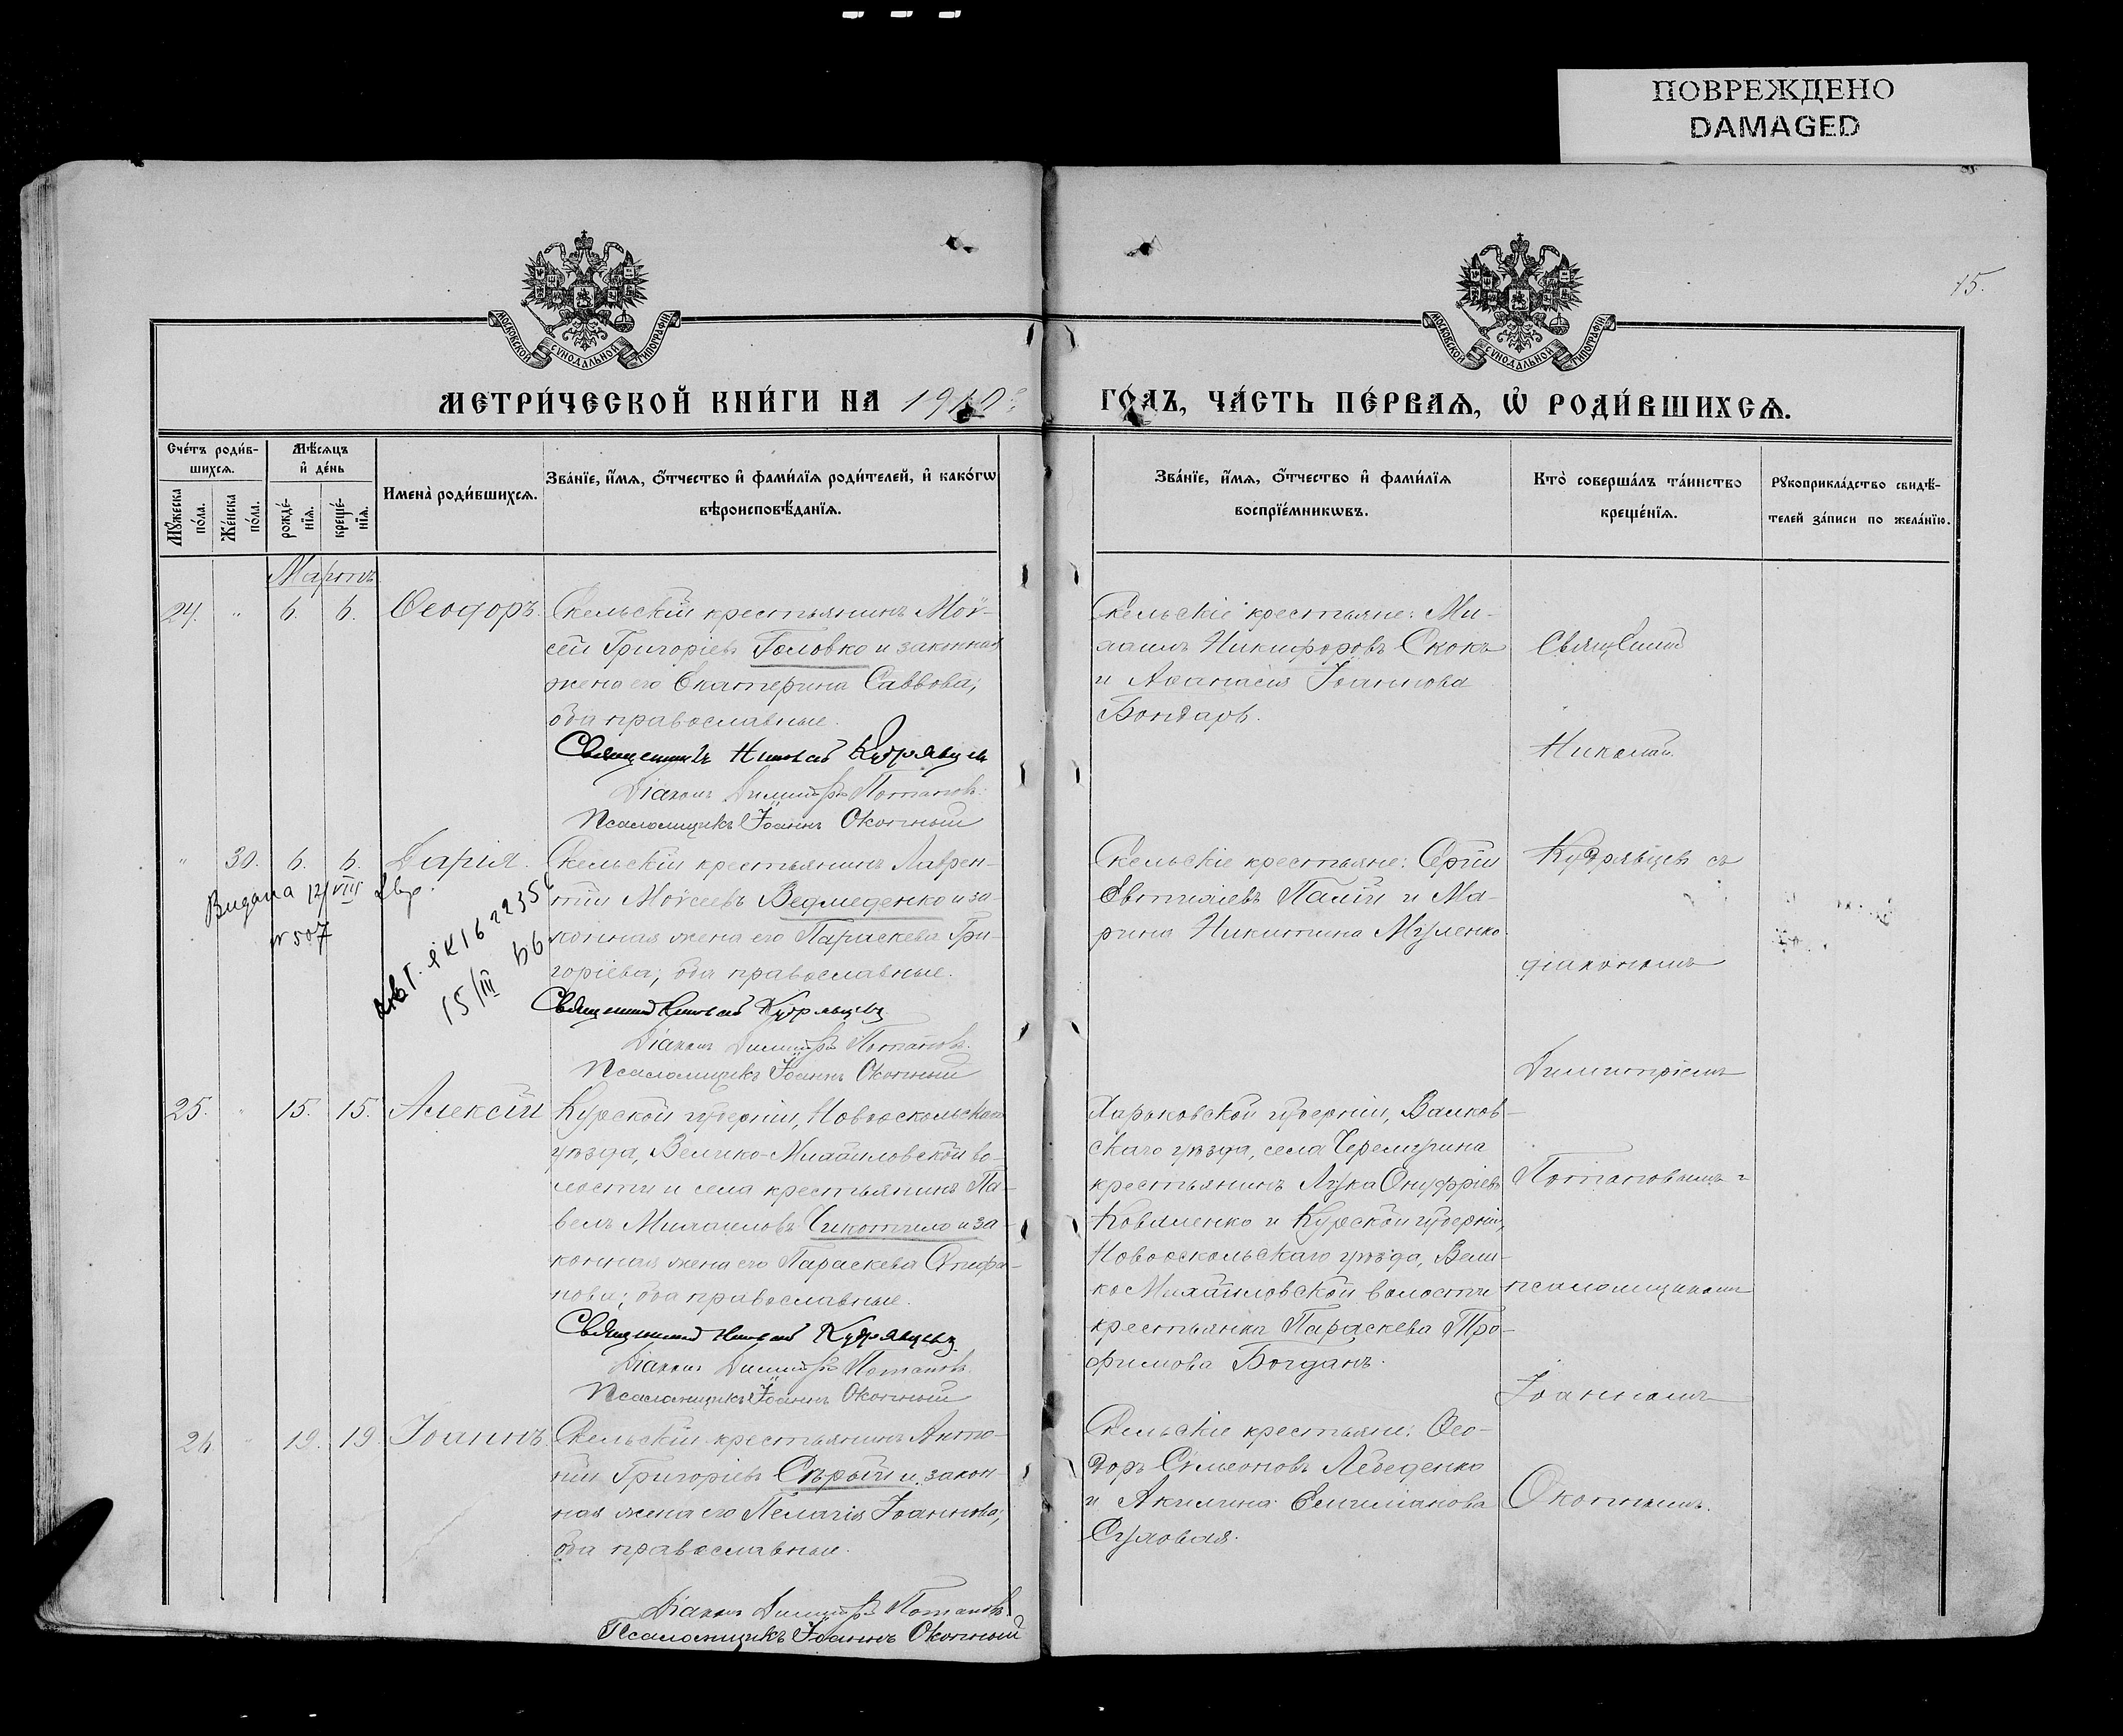 ПОВРЕЖДЕНО
DAMAGED
15.
МОСКОВСКОЙ СѴНОДАЛЬНОЙ ТИПОГРАФІИ
МОСКОВСКОЙ СѴНОДАЛЬНОЙ ТИПОГРАФІИ
МЕТРИ́ЧЕСКОЙ КНИ́ГИ НА 1910 г.
ГО́ДЪ, ЧА́СТЬ ПЕ́РВАѦ, Ѡ҆ РОДИ́ВШИХСѦ.
Счётъ роди́в-
шихсѧ.
Мѣ́сѧцъ
и҆ де́нь
Мꙋ́жеска
по́ла.
Же́нска
по́ла.
рожде́-
нїѧ.
креще́-
нїѧ.
Имена̀ роди́вшихсѧ.
Зва́нїе, и҆́мѧ, ѻ҆́тчество и҆ фами́лїѧ роди́телей, и҆ како́гѡ
вѣроисповѣ́данїѧ.
Зва́нїе, и҆́мѧ, ѻ҆́тчество и҆ фами́лїѧ
воспрїе́мникѡвъ.
Кто̀ соверша́лъ та́инство
креще́нїѧ.
Рꙋкоприкла́дство свидѣ́-
телей за́писи по жела́нїю.
Мартъ
24. " 6. 6. Ѳеодоръ.
Скельскій крестьянинъ Мой-
сей Григоріевъ Головко и законная
жена его Екатерина Саввова;
оба православные.
Священникъ Николай Кудрявцевъ
Діаконъ Димитрій Потаповъ.
Псаломщикъ Іоаннъ Окопный
Скельскіе крестьяне: Ми-
хаилъ Никифоровъ Скокъ
и Аѳанасія Іоаннова
Бондарь.
" 30. 6. 6. Дарія.
Видана 12/VIII 2 вур.
№ 507
15/III 66
Скельскій крестьянинъ Лаврен-
тій Мойсеевъ Ведмеденко и за-
конная жена его Параскева Гри-
горіева; оба православные.
Священникъ Николай Кудрявцевъ
Діаконъ Димитрій Потаповъ.
Псаломщикъ Іоаннъ Окопный
Скельскіе крестьяне: Сергій
Евтихіевъ Палій и Ма-
рина Никитина Муленко.
25. " 15. 15. Алексій
Курской губерніи, Новооскольскаго
уѣзда, Велико-Михайловской во-
лости и села крестьянинъ Па-
велъ Михаиловъ Чикотило и за-
конная жена его Параскева Епифа-
нова; оба православные.
Священникъ Николай Кудрявцевъ
Діаконъ Димитрій Потаповъ.
Псаломщикъ Іоаннъ Окопный
Харьковской губерніи, Валков-
скаго уѣзда, села Черемушна
крестьянинъ Лука Онуфріевъ
Коваленко и Курской губерніи,
Новооскольскаго уѣзда, Вели-
ко Михайловской волости
крестьянка Параскева Тро-
фимова Богданъ.
26 " 19. 19. Іоаннъ
Скельскій крестьянинъ Анто-
ній Григоріевъ Сѣрый и закон-
ная жена его Пелагія Іоаннова;
оба православные.
Діаконъ Димитрій Потаповъ
Псаломщикъ Іоаннъ Окопный
Скельскіе крестьяне: Ѳео-
доръ Сѵмеоновъ Лебеденко
и Акилина Емиліанова
Суховая.
Священникъ
Николай
Кудрявцевъ съ
діакономъ
Димитріемъ
Потаповымъ и
псаломщикомъ
Іоанномъ
Окопнымъ.